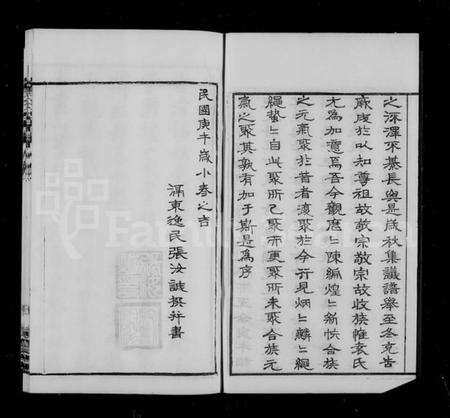 之深澤不綦長與是歲秋集議譜舉至冬克告
厥成於以知尊祖故敬宗敬宗故收族惟袁氏
尤為加遺焉吾今觀麽二陳編煌二新帙合族
之元氣聚於昔者復聚於今行見烟二麟二繩
繩蟄二自此聚所已聚而更聚所未聚合族元
氣之聚其孰有加于斯是為序
民國庚午歲小春之吉
滆東逸民張汝誠撰并書